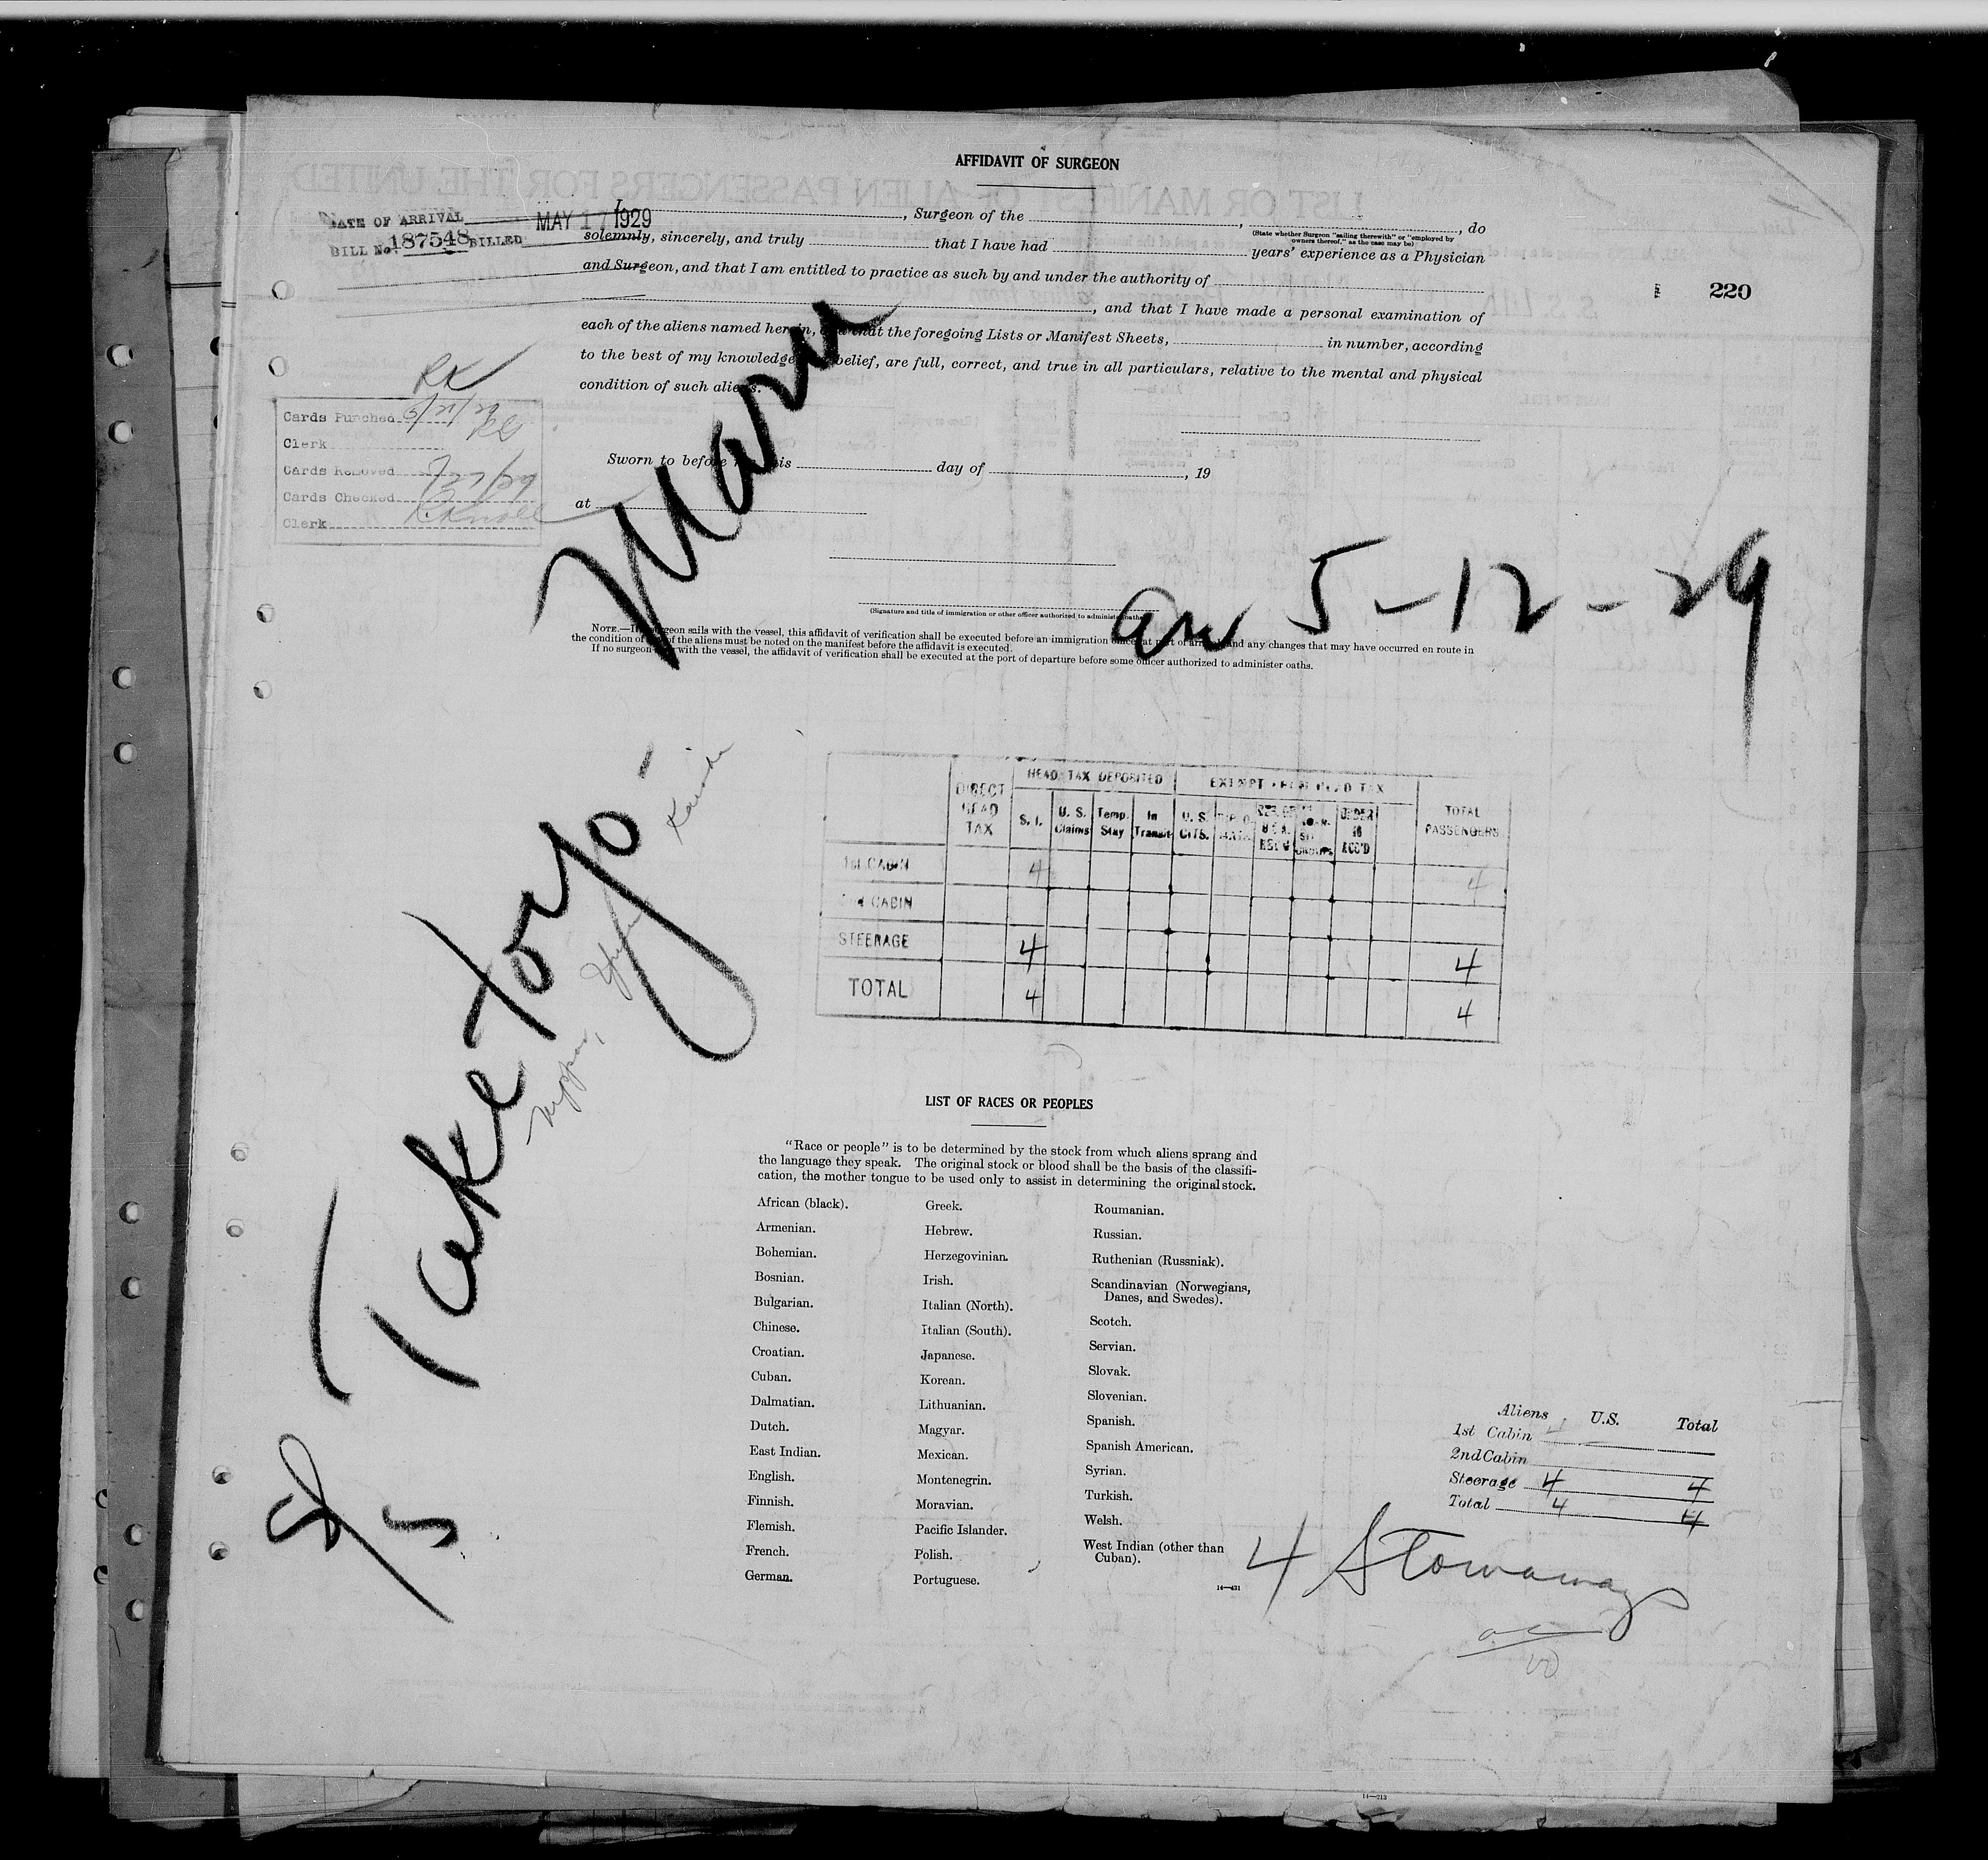 AFFIDAVIT OF SURGEON
DATE OF ARRIVAL MAY 17 1929
BILL No. 187548 BILLED
I, Surgeon of the , , do
(State whether Surgeon "sailing therewith" or "employed by owners thereof," as the case may be)
solemnly, sincerely, and truly that I have had years' experience as a Physician
and Surgeon, and that I am entitled to practice as such by and under the authority of
, and that I have made a personal examination of
each of the aliens named herein, and that the foregoing Lists or Manifest Sheets, in number, according
to the best of my knowledge and belief, are full, correct, and true in all particulars, relative to the mental and physical
condition of such aliens.
220
RK
Cards Punched 5/21/29
Clerk
Cards Removed 7/27/29
Cards Checked
Clerk
Sworn to before me this day of , 19
at
(Signature and title of immigration or other officer authorized to administer oaths)
NOTE.—If a surgeon sails with the vessel, this affidavit of verification shall be executed before an immigration officer at port of arrival and any changes that may have occurred en route in
the condition of any of the aliens must be noted on the manifest before the affidavit is executed.
If no surgeon sails with the vessel, the affidavit of verification shall be executed at the port of departure before some officer authorized to administer oaths.
S/S Taketoyo Maru
arr 5-12-29
HEAD TAX DEPOSITED EXEMPT FROM HEAD TAX
DIRECT HEAD TAX S. I. U. S. Claims Temp. Stay In Transit U. S. CITS. TOTAL PASSENGERS
1st CABIN 4 4
2nd CABIN
STEERAGE 4 4
TOTAL 4 4
LIST OF RACES OR PEOPLES
"Race or people" is to be determined by the stock from which aliens sprang and
the language they speak. The original stock or blood shall be the basis of the classifi-
cation, the mother tongue to be used only to assist in determining the original stock.
African (black). Greek. Roumanian.
Armenian. Hebrew. Russian.
Bohemian. Herzegovinian. Ruthenian (Russniak).
Bosnian. Irish. Scandinavian (Norwegians, Danes, and Swedes).
Bulgarian. Italian (North).
Chinese. Italian (South). Scotch.
Croatian. Japanese. Servian.
Cuban. Korean. Slovak.
Dalmatian. Lithuanian. Slovenian.
Dutch. Magyar. Spanish.
East Indian. Mexican. Spanish American.
English. Montenegrin. Syrian.
Finnish. Moravian. Turkish.
Flemish. Pacific Islander. Welsh.
French. Polish. West Indian (other than Cuban).
German. Portuguese.
14—431
Aliens U.S. Total
1st Cabin
2nd Cabin
Steerage 4 4
Total 4 4
4 Stowaways
14—213